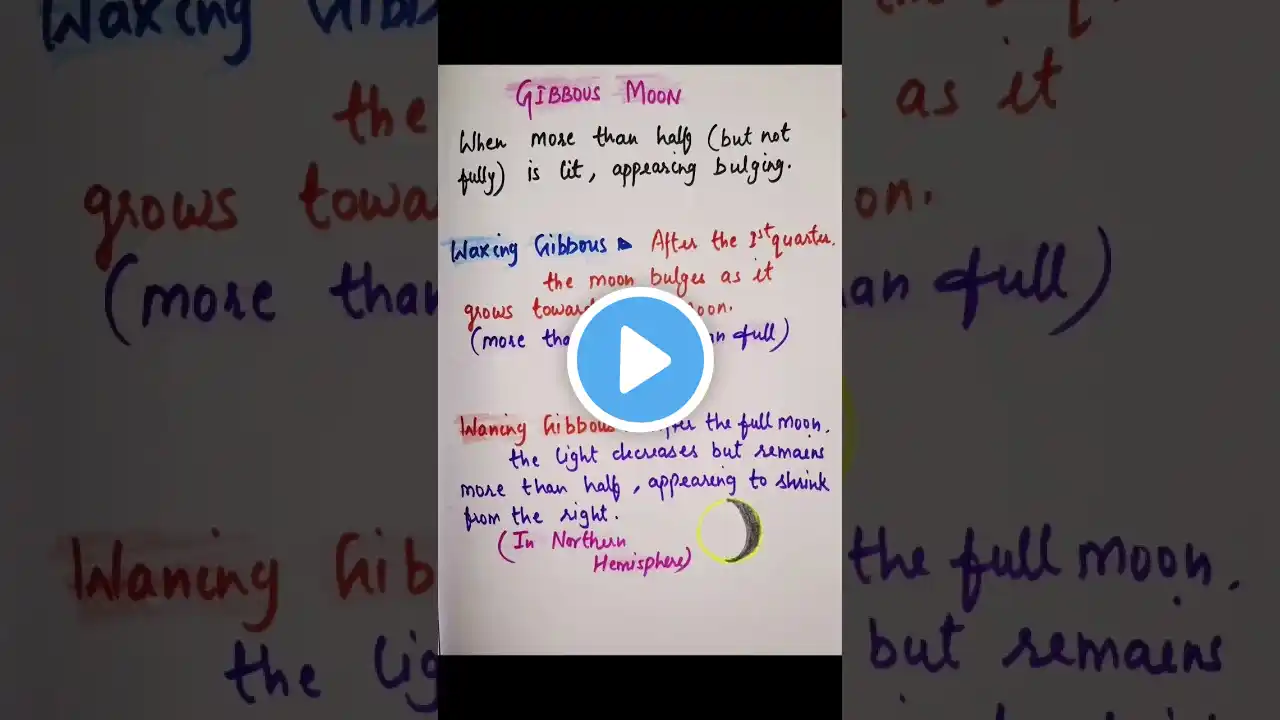 GIBBOUS MOON
When more than half (but not
fully) is lit, appearing bulging.
Waxing Gibbous After the 1st quarter.
the moon bulges as it
grows toward moon.
(more than full)
Waning Gibbous After the full moon.
the light decreases but remains
more than half, appearing to shrink
from the right.
(In Northern
Hemisphere)